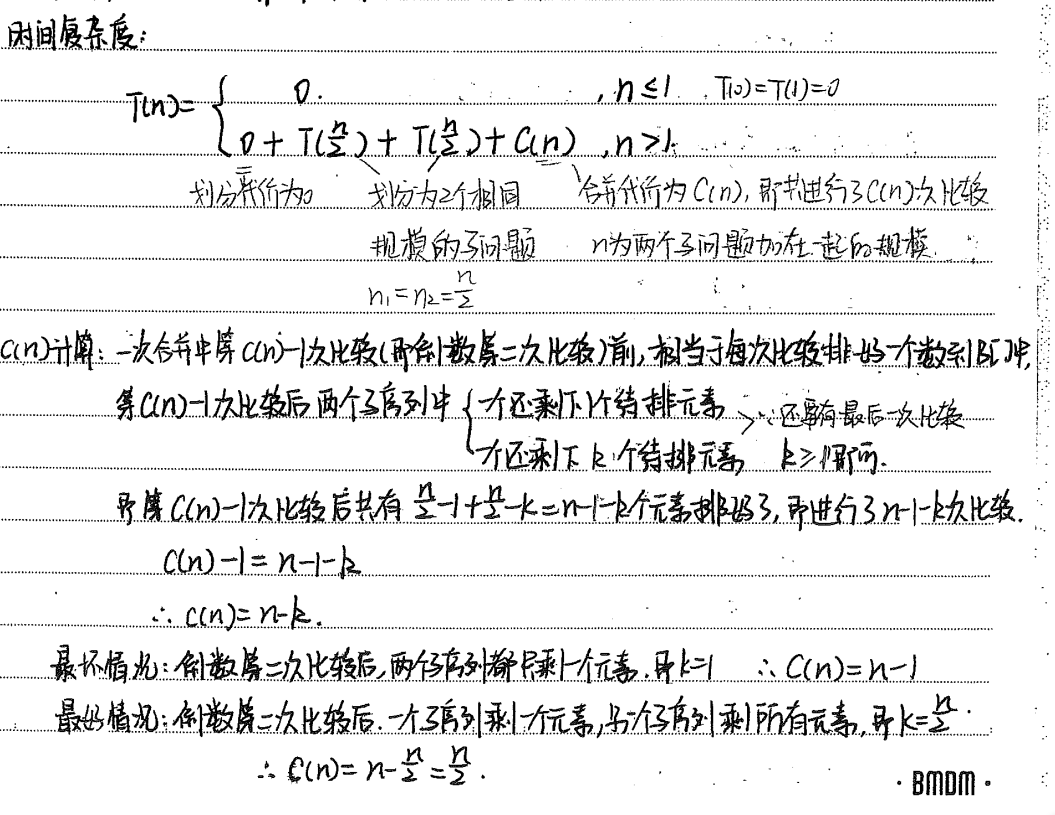 时间复杂度:
T(n)= { 0. , n≤1 . T(0)=T(1)=0
0 + T(n/2) + T(n/2) + C(n) , n>1.
划分代价为0 划分为2个相同 合并代价为C(n), 即共进行了C(n)次比较
规模的子问题 n为两个子问题加在一起的规模.
n₁=n₂=n/2
C(n)计算: 一次合并中第C(n)-1次比较(即倒数第二次比较)前, 相当于每次比较排好一个数到B[]中,
第C(n)-1次比较后两个子序列中 { 一个还剩下1个待排元素 ∵还要有最后一次比较
一个还剩下k个待排元素 k≥1即可.
即第C(n)-1次比较后共有 n/2-1+n/2-k=n-1-k个元素排好了, 即进行了n-1-k次比较.
C(n)-1=n-1-k
∴ C(n)=n-k.
最坏情况: 倒数第二次比较后, 两个子序列都只剩一个元素. 即k=1 ∴ C(n)=n-1
最好情况: 倒数第二次比较后. 一个子序列剩一个元素, 另一个子序列剩所有元素, 即k=n/2.
∴ C(n)=n-n/2=n/2.
· BMDM ·